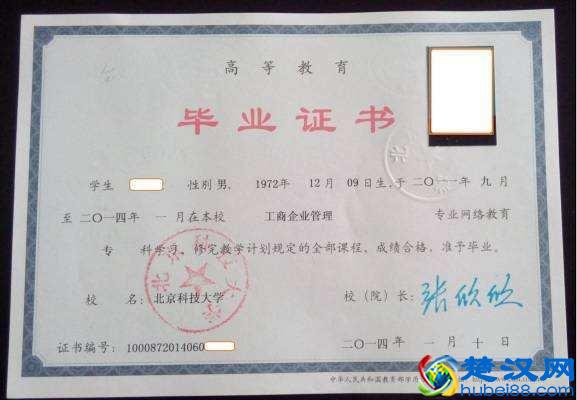 高等教育
毕业证书
学生 性别 男, 1972年 12月 09日生,于二〇一一年 九月
至二〇一四年 一月在本校 工商企业管理 专业网络教育
专 科学习, 修完教学计划规定的全部课程, 成绩合格, 准予毕业。
校 名: 北京科技大学 校(院)长: 张欣欣
证书编号: 1000872014060 二〇一四年 一月十日
中华人民共和国教育部学历
楚汉网
hubei88.com